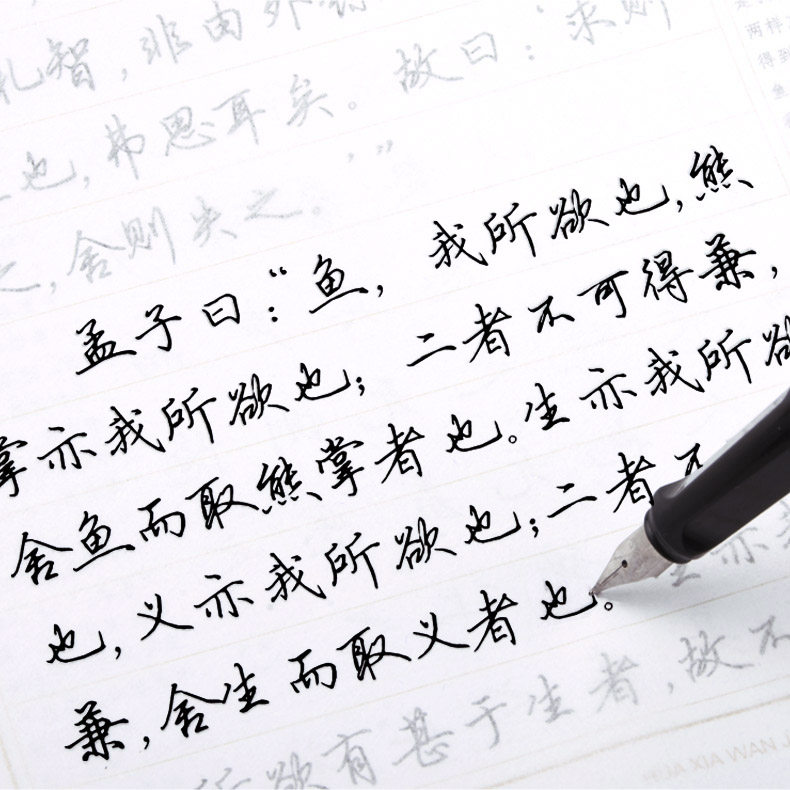 礼智,非由外
也,弗思耳矣。故曰:‘求则
之,舍则失之。’”
两样
得到
鱼
孟子曰:“鱼,我所欲也,熊
掌亦我所欲也;二者不可得兼,
舍鱼而取熊掌者也。生亦我所欲
也,义亦我所欲也;二者不
兼,舍生而取义者也。生亦我
所欲有甚于生者,故不
XIA WAN